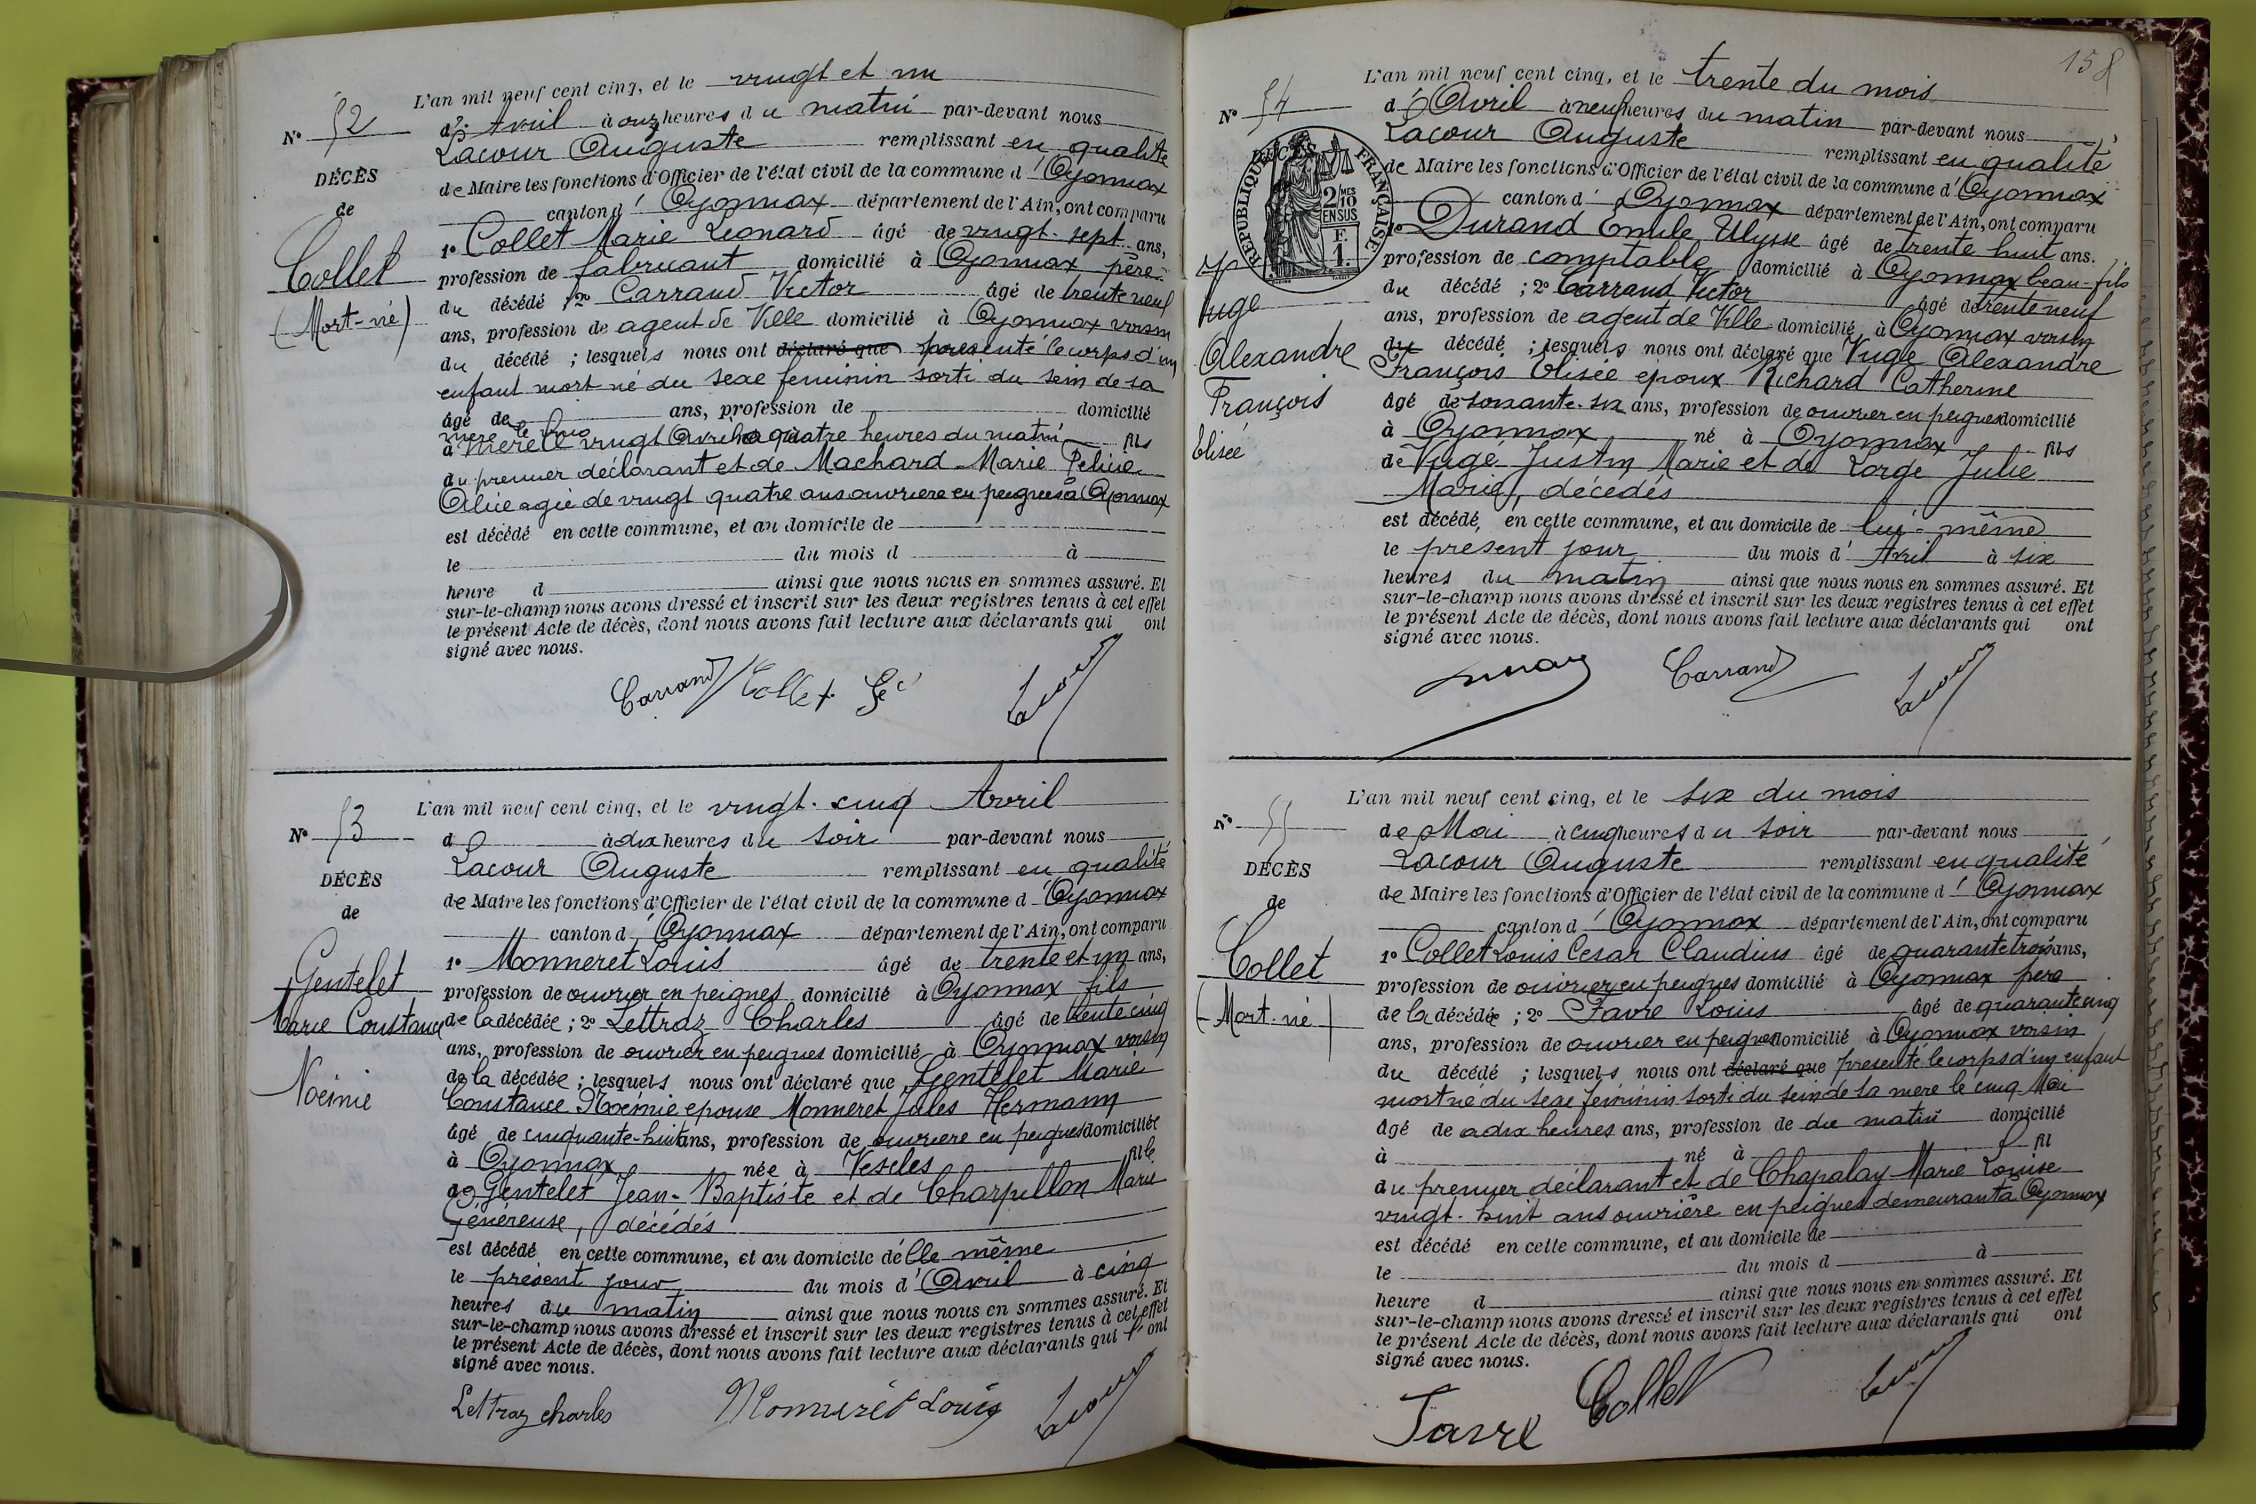 L'an mil neuf cent cinq, et le vingt et un
N° 52
d' Avril à onze heures du matin par-devant nous
Lacour Auguste remplissant en qualité
DÉCÈS
de Maire les fonctions d'Officier de l'état civil de la commune d'Oyonnax
de
canton d'Oyonnax département de l'Ain, ont comparu
Collet
1° Collet Marie Léonard âgé de vingt-sept ans,
profession de fabricant domicilié à Oyonnax père
(Mort-né)
du décédé 2° Carrand Victor âgé de trente neuf
ans, profession de agent de Ville domicilié à Oyonnax voisin
du décédé ; lesquels nous ont déclaré que présenté le corps d'un
enfant mort né du sexe féminin sorti du sein de sa
âgé de ans, profession de domicilié
mère le
à mère le vingt Avril à quatre heures du matin fils
du premier déclarant et de Machard Marie
Alice agée de vingt quatre ans ouvrière en peignes à Oyonnax
est décédé en cette commune, et au domicile de
le du mois d à
heure d ainsi que nous nous en sommes assuré. Et
sur-le-champ nous avons dressé et inscrit sur les deux registres tenus à cet effet
le présent Acte de décès, dont nous avons fait lecture aux déclarants qui ont
signé avec nous.
Carrand Collet Lacour
L'an mil neuf cent cinq, et le vingt-cinq Avril
N° 53
d à dix heures du soir par-devant nous
Lacour Auguste remplissant en qualité
DÉCÈS
de Maire les fonctions d'Officier de l'état civil de la commune d'Oyonnax
de
canton d'Oyonnax département de l'Ain, ont comparu
Gentelet
1° Monneret Louis âgé de trente et un ans,
profession de ouvrier en peignes domicilié à Oyonnax fils
Marie Constance
de la décédée ; 2° Lettraz Charles âgé de trente cinq
ans, profession de ouvrier en peignes domicilié à Oyonnax voisin
Noémie
de la décédée ; lesquels nous ont déclaré que Gentelet Marie
Constance Noémie épouse Monneret Jules Hermann
âgé de cinquante-huit ans, profession de ouvrière en peignes domiciliée
à Oyonnax née à Vescles fille
de Gentelet Jean-Baptiste et de Charpillon Marie
Généreuse, décédés
est décédé en cette commune, et au domicile d'elle même
le présent jour du mois d'Avril à cinq
heures du matin ainsi que nous nous en sommes assuré. Et
sur-le-champ nous avons dressé et inscrit sur les deux registres tenus à cet effet
le présent Acte de décès, dont nous avons fait lecture aux déclarants qui l'ont
signé avec nous.
Lettraz charles Monneret Louis Lacour
158
L'an mil neuf cent cinq, et le trente du mois
N° 54
d'Avril à neuf heures du matin par-devant nous
Lacour Auguste remplissant en qualité
DÉCÈS
RÉPUBLIQUE FRANÇAISE
2/10 MES EN SUS
F. 1.
de Maire les fonctions d'Officier de l'état civil de la commune d'Oyonnax
canton d'Oyonnax département de l'Ain, ont comparu
1° Durand Emile Ulysse âgé de trente huit ans.
profession de comptable domicilié à Oyonnax beau-fils
Vuge
du décédé ; 2° Carrand Victor âgé de trente neuf
ans, profession de agent de Ville domicilié à Oyonnax voisin
Alexandre
du décédé ; lesquels nous ont déclaré que Vuge Alexandre
François Elisée époux Richard Catherine
François
âgé de soixante-six ans, profession de ouvrier en peignes domicilié
à Oyonnax né à Oyonnax fils
Elisée
de Vugé Justin Marie et de Lorge Julie
Marie, décédés
est décédé en cette commune, et au domicile de lui-même
le présent jour du mois d'Avril à six
heures du matin ainsi que nous nous en sommes assuré. Et
sur-le-champ nous avons dressé et inscrit sur les deux registres tenus à cet effet
le présent Acte de décès, dont nous avons fait lecture aux déclarants qui ont
signé avec nous.
Carrand Lacour
L'an mil neuf cent cinq, et le six du mois
N° 55
de Mai à cinq heures du soir par-devant nous
Lacour Auguste remplissant en qualité
DÉCÈS
de Maire les fonctions d'Officier de l'état civil de la commune d'Oyonnax
de
canton d'Oyonnax département de l'Ain, ont comparu
Collet
1° Collet Louis Cesar Claudius âgé de quarante trois ans,
profession de ouvrier en peignes domicilié à Oyonnax père
(Mort-né)
de la décédée ; 2° Favre Louis âgé de quarante cinq
ans, profession de ouvrier en peignes domicilié à Oyonnax voisin
du décédé ; lesquels nous ont déclaré que présenté le corps d'un enfant
mort né du sexe féminin sorti du sein de sa mère le cinq Mai
âgé de à dix heures ans, profession de du matin domicilié
à né à fil
du premier déclarant et de Chapalay Marie Louise
vingt-huit ans ouvrière en peignes demeurant à Oyonnax
est décédé en cette commune, et au domicile de
le du mois d à
heure d ainsi que nous nous en sommes assuré. Et
sur-le-champ nous avons dressé et inscrit sur les deux registres tenus à cet effet
le présent Acte de décès, dont nous avons fait lecture aux déclarants qui ont
signé avec nous.
Favre Collet Lacour